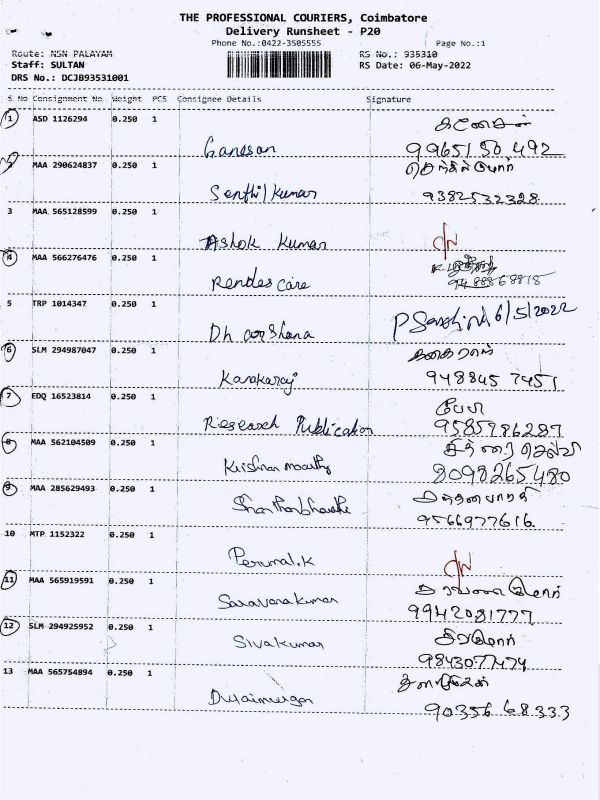 THE PROFESSIONAL COURIERS, Coimbatore
Delivery Runsheet - P20
Phone No.:0422-3505555 Page No.:1
Route: NSN PALAYAM RS No.: 935310
Staff: SULTAN RS Date: 06-May-2022
DRS No.: DCJB93531001
S No Consignment No Weight PCS Consignee Details Signature
1 ASD 1126294 0.250 1
Ganesan 99651 50 492
2 MAA 290624837 0.250 1
Senthilkumar 9382532328
3 MAA 565128599 0.250 1
Ashok Kumar
4 MAA 566276476 0.250 1
Rendes Care 9488868818
5 TRP 1014347 0.250 1 6/5/2022
Dharshana
6 SLM 294987047 0.250 1
Kanakaraj 948845 7451
7 EDQ 16523814 0.250 1
Research Publication 9585786287
8 MAA 562104509 0.250 1 சித்ரைசெல்வி
Krishnamoorthy 8098265480
9 MAA 285629493 0.250 1
Shanthanbharathi 9566977616
10 MTP 1152322 0.250 1
Perumal.K
11 MAA 565919591 0.250 1
Saravanakumar 9942081777
12 SLM 294925952 0.250 1
Sivakumar 9843077474
13 MAA 565754894 0.250 1
Duraimurgan 90356 68333